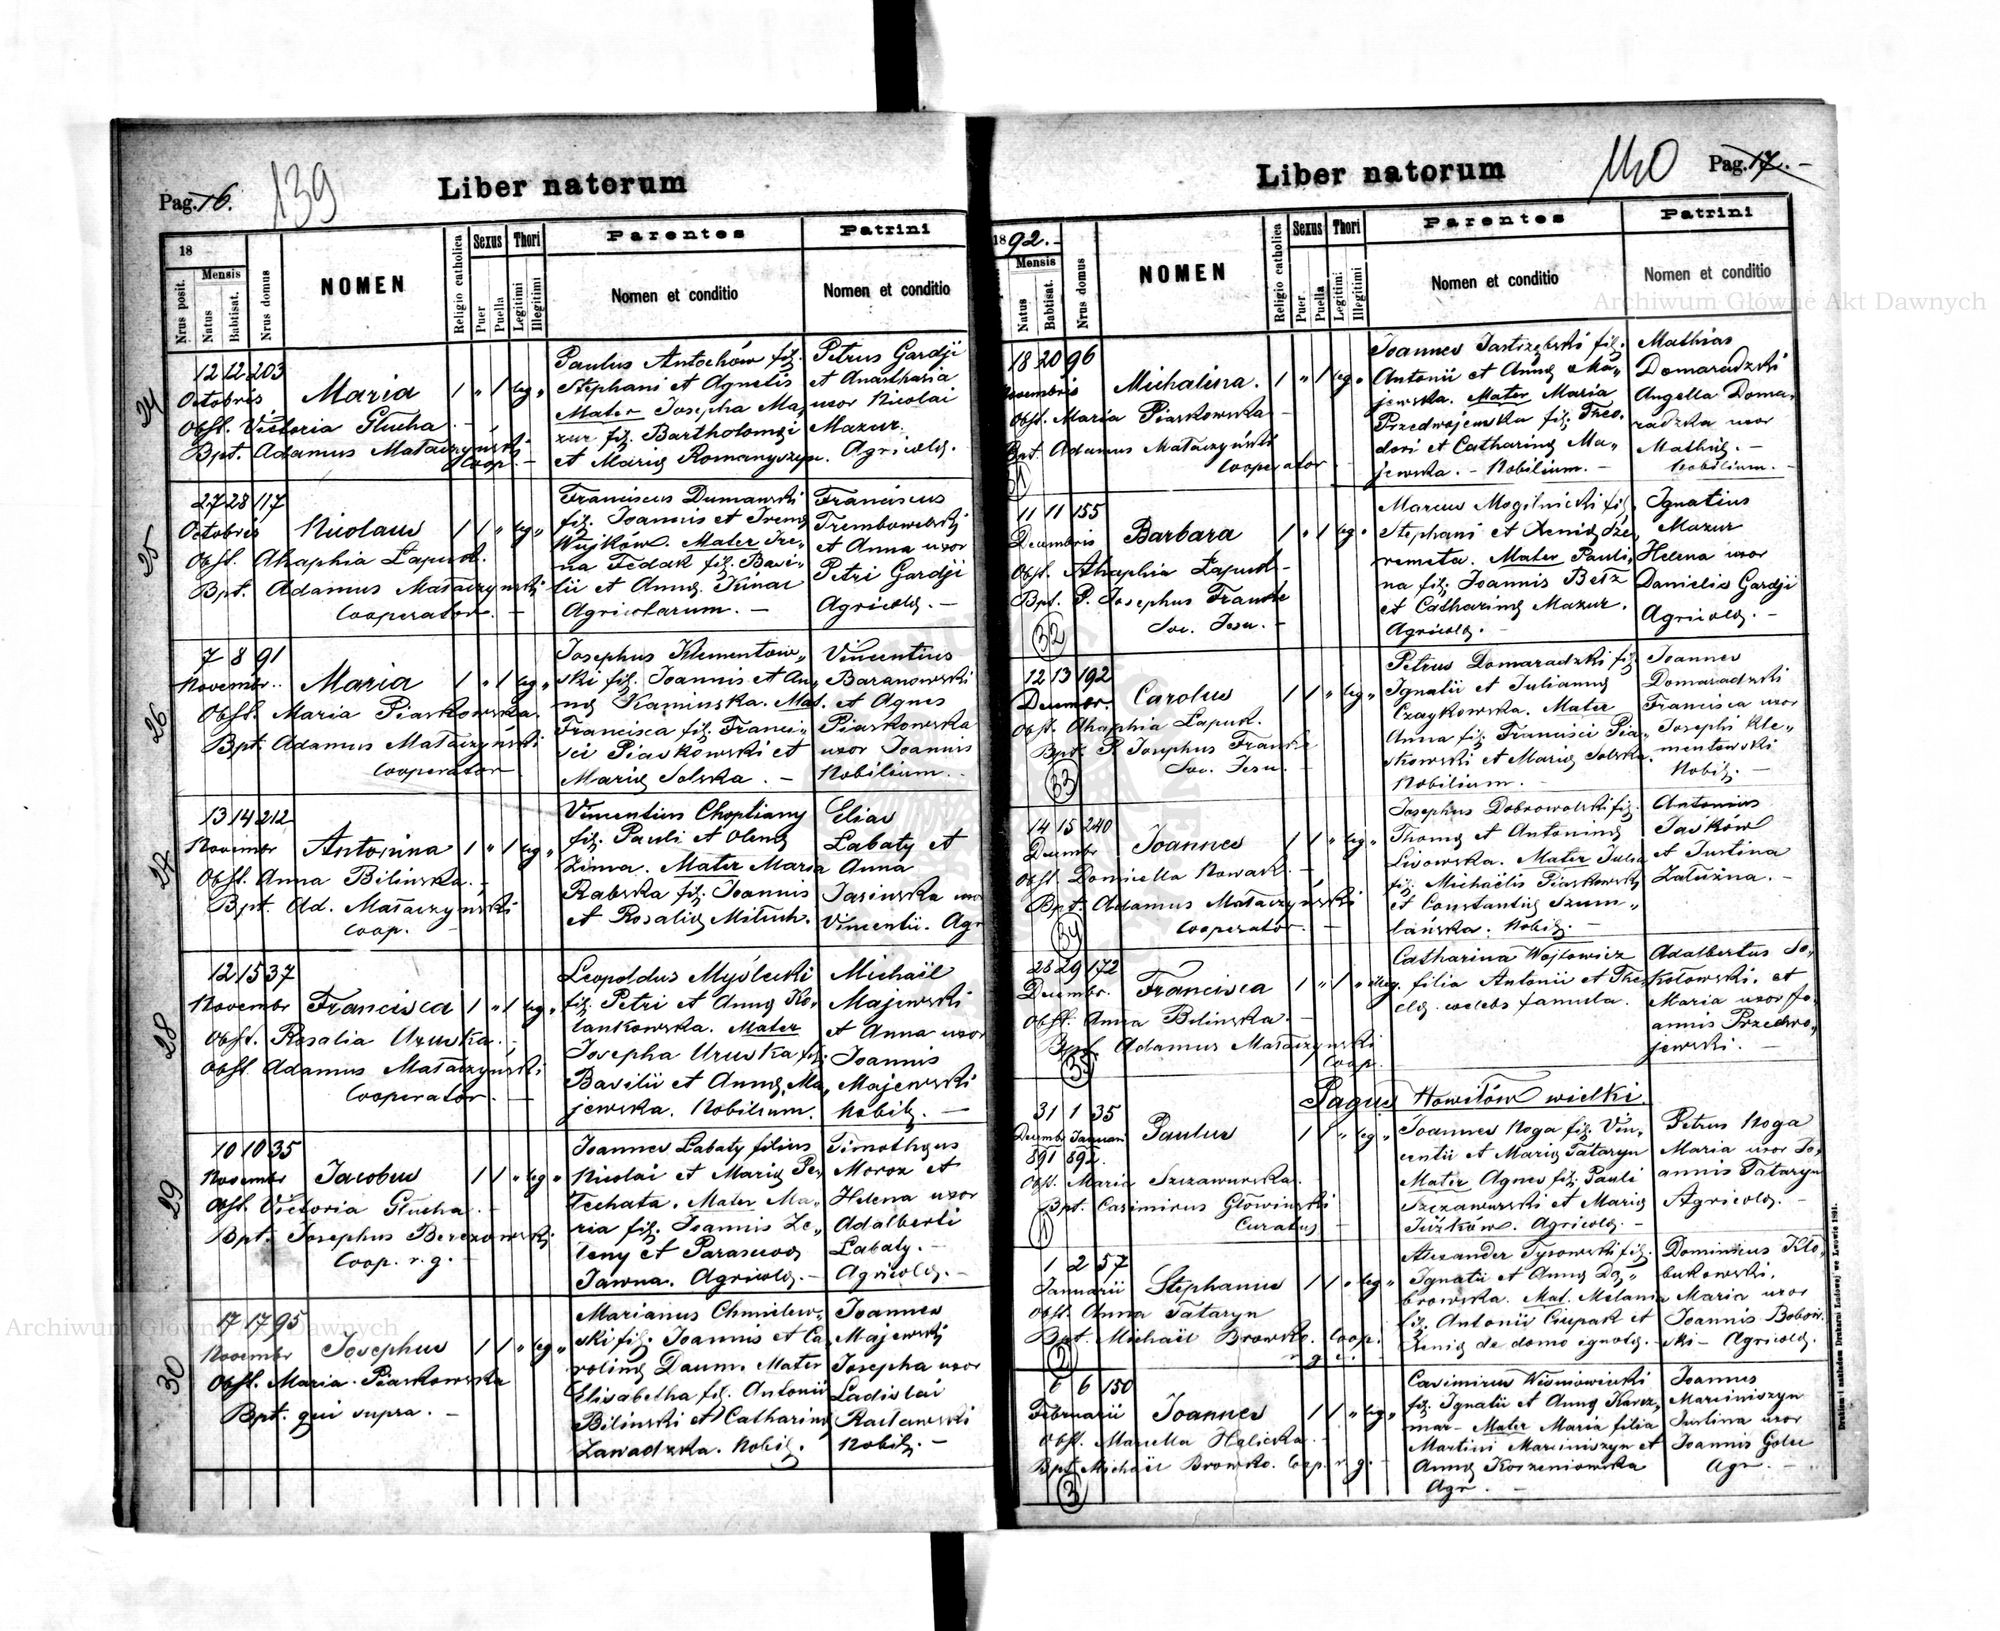 Pag. 16.
139
Liber natorum
18
Nrus posit.
Mensis
Natus
Babtisat.
Nrus domus
NOMEN
Religio catholica
Sexus
Puer
Puella
Thori
Legitimi
Illegitimi
Parentes
Nomen et conditio
Patrini
Nomen et conditio
24
12 12 203
Octobris
Maria 1 " 1 leg "
Obst. Victoria Głucha. -
Bpt. Adamus Mataczyński
Coop. -
Paulus Antochów fil.
Stephani et Agnetis
Mater Josepha Ma,
zur fil. Bartholomęi
et Marię Romanyszyn.
Petrus Gardji
et Anasthasia
uxor Nicolai
Mazur.
Agricolę.
25
27 28 117
Octobris
Nicolaus 1 1 " leg "
Obst. Ahaphia Łapuk.
Bpt. Adamus Mataczyński
Cooperator. -
Franciscus Dumański
fil. Joannis et Irenę
Wujków. Mater Ire-
na Fedak fil. Basi-
lii et Annę Kinac
Agricolarum. -
Franciscus
Trembowelskj
et Anna uxor
Petri Gardji
Agricolę. -
26
7 8 91
Novembr..
Maria 1 " 1 leg "
Obst. Maria Piaskowska.
Bpt. Adamus Mataczyński
Cooperator
Josephus Klementow,,
ski fil. Joannis et An,
nę Kaminska. Mat.
Francisca fil. Franci-
sci Piaskowski et
Marię Solska. -
Vincentius
Baranowski
et Agnes
Piaskowska
uxor Joannis
Nobilium. -
27
13 14 212
Novembr
Antonina 1 " 1 leg "
Obst. Anna Bilinska. -
Bpt. Ad. Mataczyński
Coop. -
Vincentius Choptiany
fil. Pauli et Olenę
Zima. Mater Maria
Rabska fil. Joannis
et Rosalię Mituch.
Elias
Labaty et
Anna
Jasinska uxor
Vincentii. Agr
28
12 15 37
Novembr
Francisca 1 " 1 leg "
Obst. Rosalia Uruska. -
Obst Adamus Mataczyński
Cooperator. -
Leopoldus Myślecki
fil. Petri et Annę Ko,
lankowska. Mater
Josepha Uruska fil.
Basilii et Annę Ma,,
jewska. Nobilium.
Michaël
Majewski
et Anna uxor
Joannis
Majewski
Nobilę. -
29
10 10 35
Novembr
Jacobus 1 1 " leg "
Obst. Victoria Głucha. -
Bpt. Josephus Berezowski
Coop. r. g. -
Joannes Labaty filius
Nicolai et Marię Pe,
techata. Mater Ma-
ria fil. Joannis Ze,,
leny et Parascvę
Jawna. Agricolę. -
Timothęus
Moroz et
Helena uxor
Adalberti
Labaty. -
Agricolę. -
30
17 17 95
Novembr
Josephus 1 1 " leg "
Obst. Maria Piaskowska
Bpt. qui supra. -
Marianus Chmielew-
ski fil. Joannis et Ca,
rolinę Daum. Mater
Elisabetha fil. Antonii
Bilinski et Catharinę
Zawadzka. Nobilę.
Joannes
Majewskj
Josepha uxor
Ladislai
Nobilę. -
Liber natorum
140
Pag. 17. -
1892. -
Mensis
Natus
Babtisat.
Nrus domus
NOMEN
Religio catholica
Sexus
Puer
Puella
Thori
Legitimi
Illegitimi
Parentes
Nomen et conditio
Patrini
Nomen et conditio
18 20 96
Novembris
Michalina. 1 " 1 leg "
Obst. Maria Piaskowska -
Bpt. Adamus Mataczyński
Cooperator -
31
Joannes Jastrzębski fil.
Antonii et Annę Ma,
jewska. Mater Maria
Przedwojewska fil. Theo-
dori et Catharinę Ma,
jewska. - Nobilium. -
Mathias
Domaradzki
Angella Doma,
radzka uxor
Mathię. -
Nobilium. -
11 11 155
Decembris
Barbara 1 " 1 leg "
Obst. Ahaphia Łapuk -
Bpt. P. Josephus Franke
Soc. Jesu. -
32
Marcus Mogilnicki fil.
Stephani et Xenię Sze,
remeta. Mater Pauli,
na fil. Joannis Betz
et Catharinę Mazur.
Agricolę. -
Ignatius
Mazur
Helena uxor
Danielis Gardji
Agricolę. -
12 13 192
Decembr.
Carolus 1 1 " leg "
Obst. Ahaphia Łapuk.
Bpt. P. Josephus Franke
Soc. Jesu.
33
Petrus Domaradzki fil.
Ignatii et Juliannę
Czaykowska. Mater
Anna fil. Francisci Pia,
skowski et Marię Solska.
Nobilium. -
Joannes
Domaradzki
Francisca uxor
Josephi Kle-
mentowski
Nobilę. -
14 15 240
Decembr
Joannes 1 1 " leg "
Obst. Domicella Nowak. -
Bpt. Adamus Mataczyński
Cooperator. -
34
Josephus Dobrowolski fil.
Thomę et Antoninę
Lisowska. Mater Julia
fil. Michaëlis Piaskowskj
et Constantię Szum,,
lańska. Nobilę. -
Antonius
Jaśków
et Justina
Załużna. -
28 29 172
Decembr.
Francisca 1 " 1 " illeg.
Obst. Anna Bilinska. -
Bpt. Adamus Mataczyński
Coop.
35
Catharina Wojtowicz
filia Antonii et The,
clę. coelebs famula. -
Adalbertus So,
kołowski. et
Maria uxor Jo,
annis Przedwo,
jewski. -
Pagus Howiłów wielki.
31 1 35
Decembr Januari
891 892.
Paulus 1 1 " leg "
Obst. Maria Szczawurska.
Bpt. Casimirus Głowiński
Curatus -
1
Joannes Noga fil. Vin,
centii et Marię Tataryn
Mater Agnes fil. Pauli
Szczawurski et Marię
Juśków. Agricolę. -
Petrus Noga
Maria uxor Jo,
annis Tataryn
Agricolę. -
1 2 57
Januarii
Stephanus 1 1 " leg "
Obst. Anna Tataryn
Bpt. Michaël Browko. Coop.
r. g. c. -
2
Alexander Tysowski fil.
Ignatii et Annę Dą,,
browska. Mat. Melania
fil. Antonii Csupak et
Xenię de domo ignotę.
Dominicus Kło,
bukowski.
Maria uxor
Joannis Bobow,
ski - Agricolę.
6 6 150
Februarii
Joannes 1 1 " leg "
Obst. Marcella Halicka. -
Bpt. Michaël Browko. Coop. r. g. -
3
Casimirus Wiśniowiecki
fil. Ignatii et Annę Karcz,
mar - Mater Maria filia
Martini Marciniszyn et
Annę Korzeniowska
Agr. -
Joannes
Marciniszyn
Justina uxor
Joannis Golec
Agr. -
Drukiem i nakładem Drukarni Ludowej we Lwowie 1891.
Archiwum Główne Akt Dawnych
Archiwum Główne Akt Dawnych